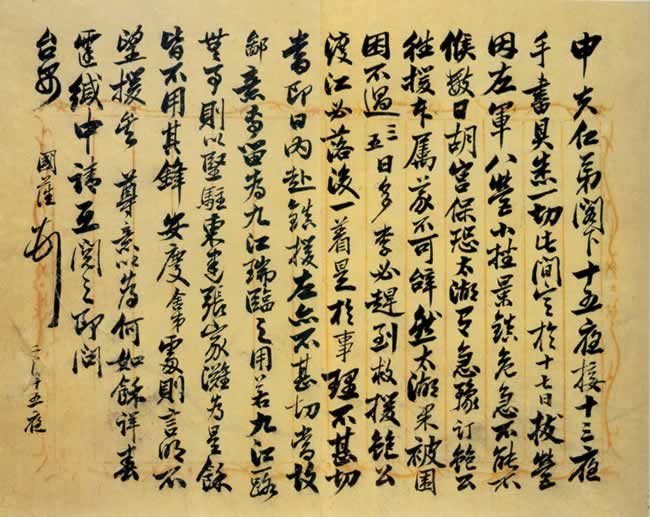 申夫仁弟閣下十五夜接十三夜
手書具悉一切此間定於十七日拔營
因左軍八營小挫景鎮危急不能不
候數日胡宮保恐太湖有急豫訂鮑公
往援本屬義不可辭然太湖果被圍
困不過三五日多李必趕到救援鮑公
渡江必落後一着是於事理不甚切
當即日內赴鎮援左亦不甚切當故
鄙意留為九江瑞臨之用若九江一路
無事則以堅駐東建張家灘為是餘
皆不用其鋒安慶舍弟處則言明不
望援矣 尊意以為何如餘詳春
霆緘中請互閱之即問
台安 國藩
二月十五夜